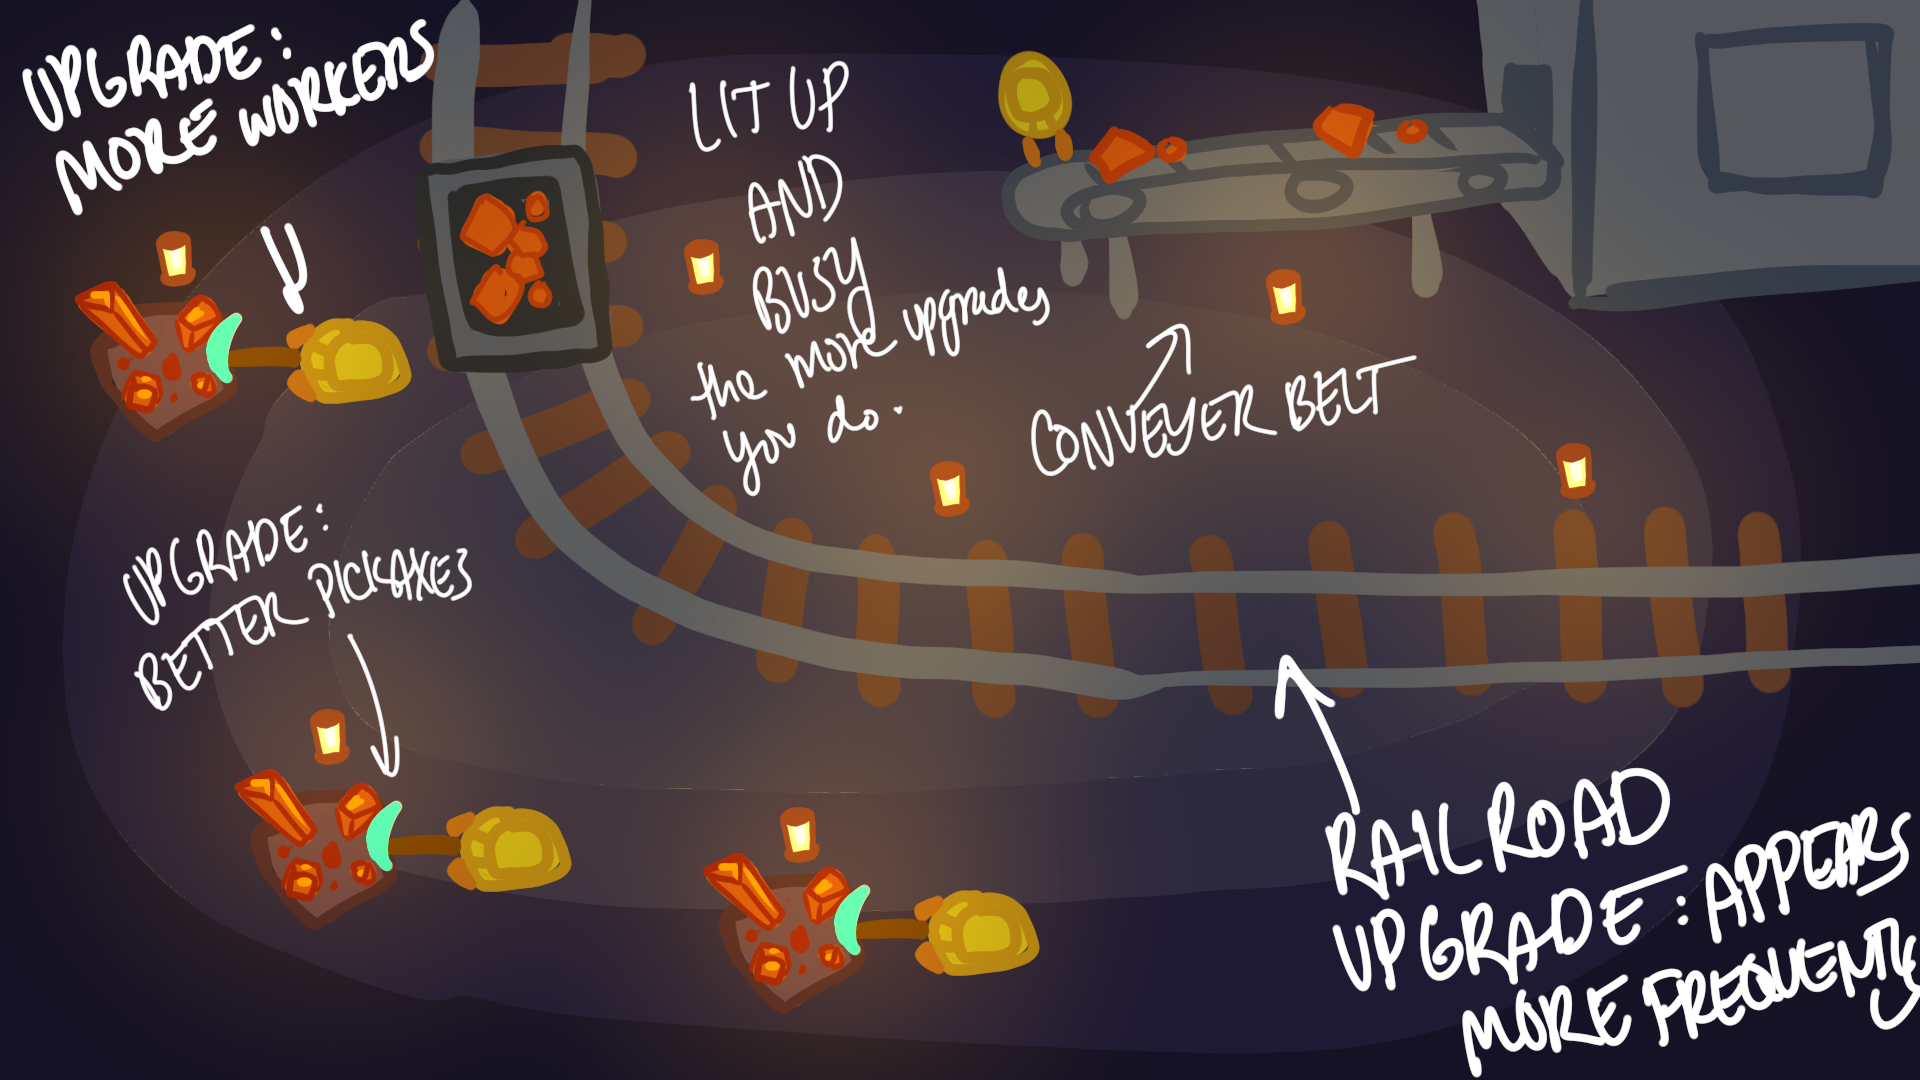 UPGRADE:
MORE WORKERS
LIT UP
AND
BUSY
the more upgrades
you do.
CONVEYER BELT
UPGRADE:
BETTER PICKAXES
RAILROAD
UPGRADE: APPEARS
MORE FREQUENTLY